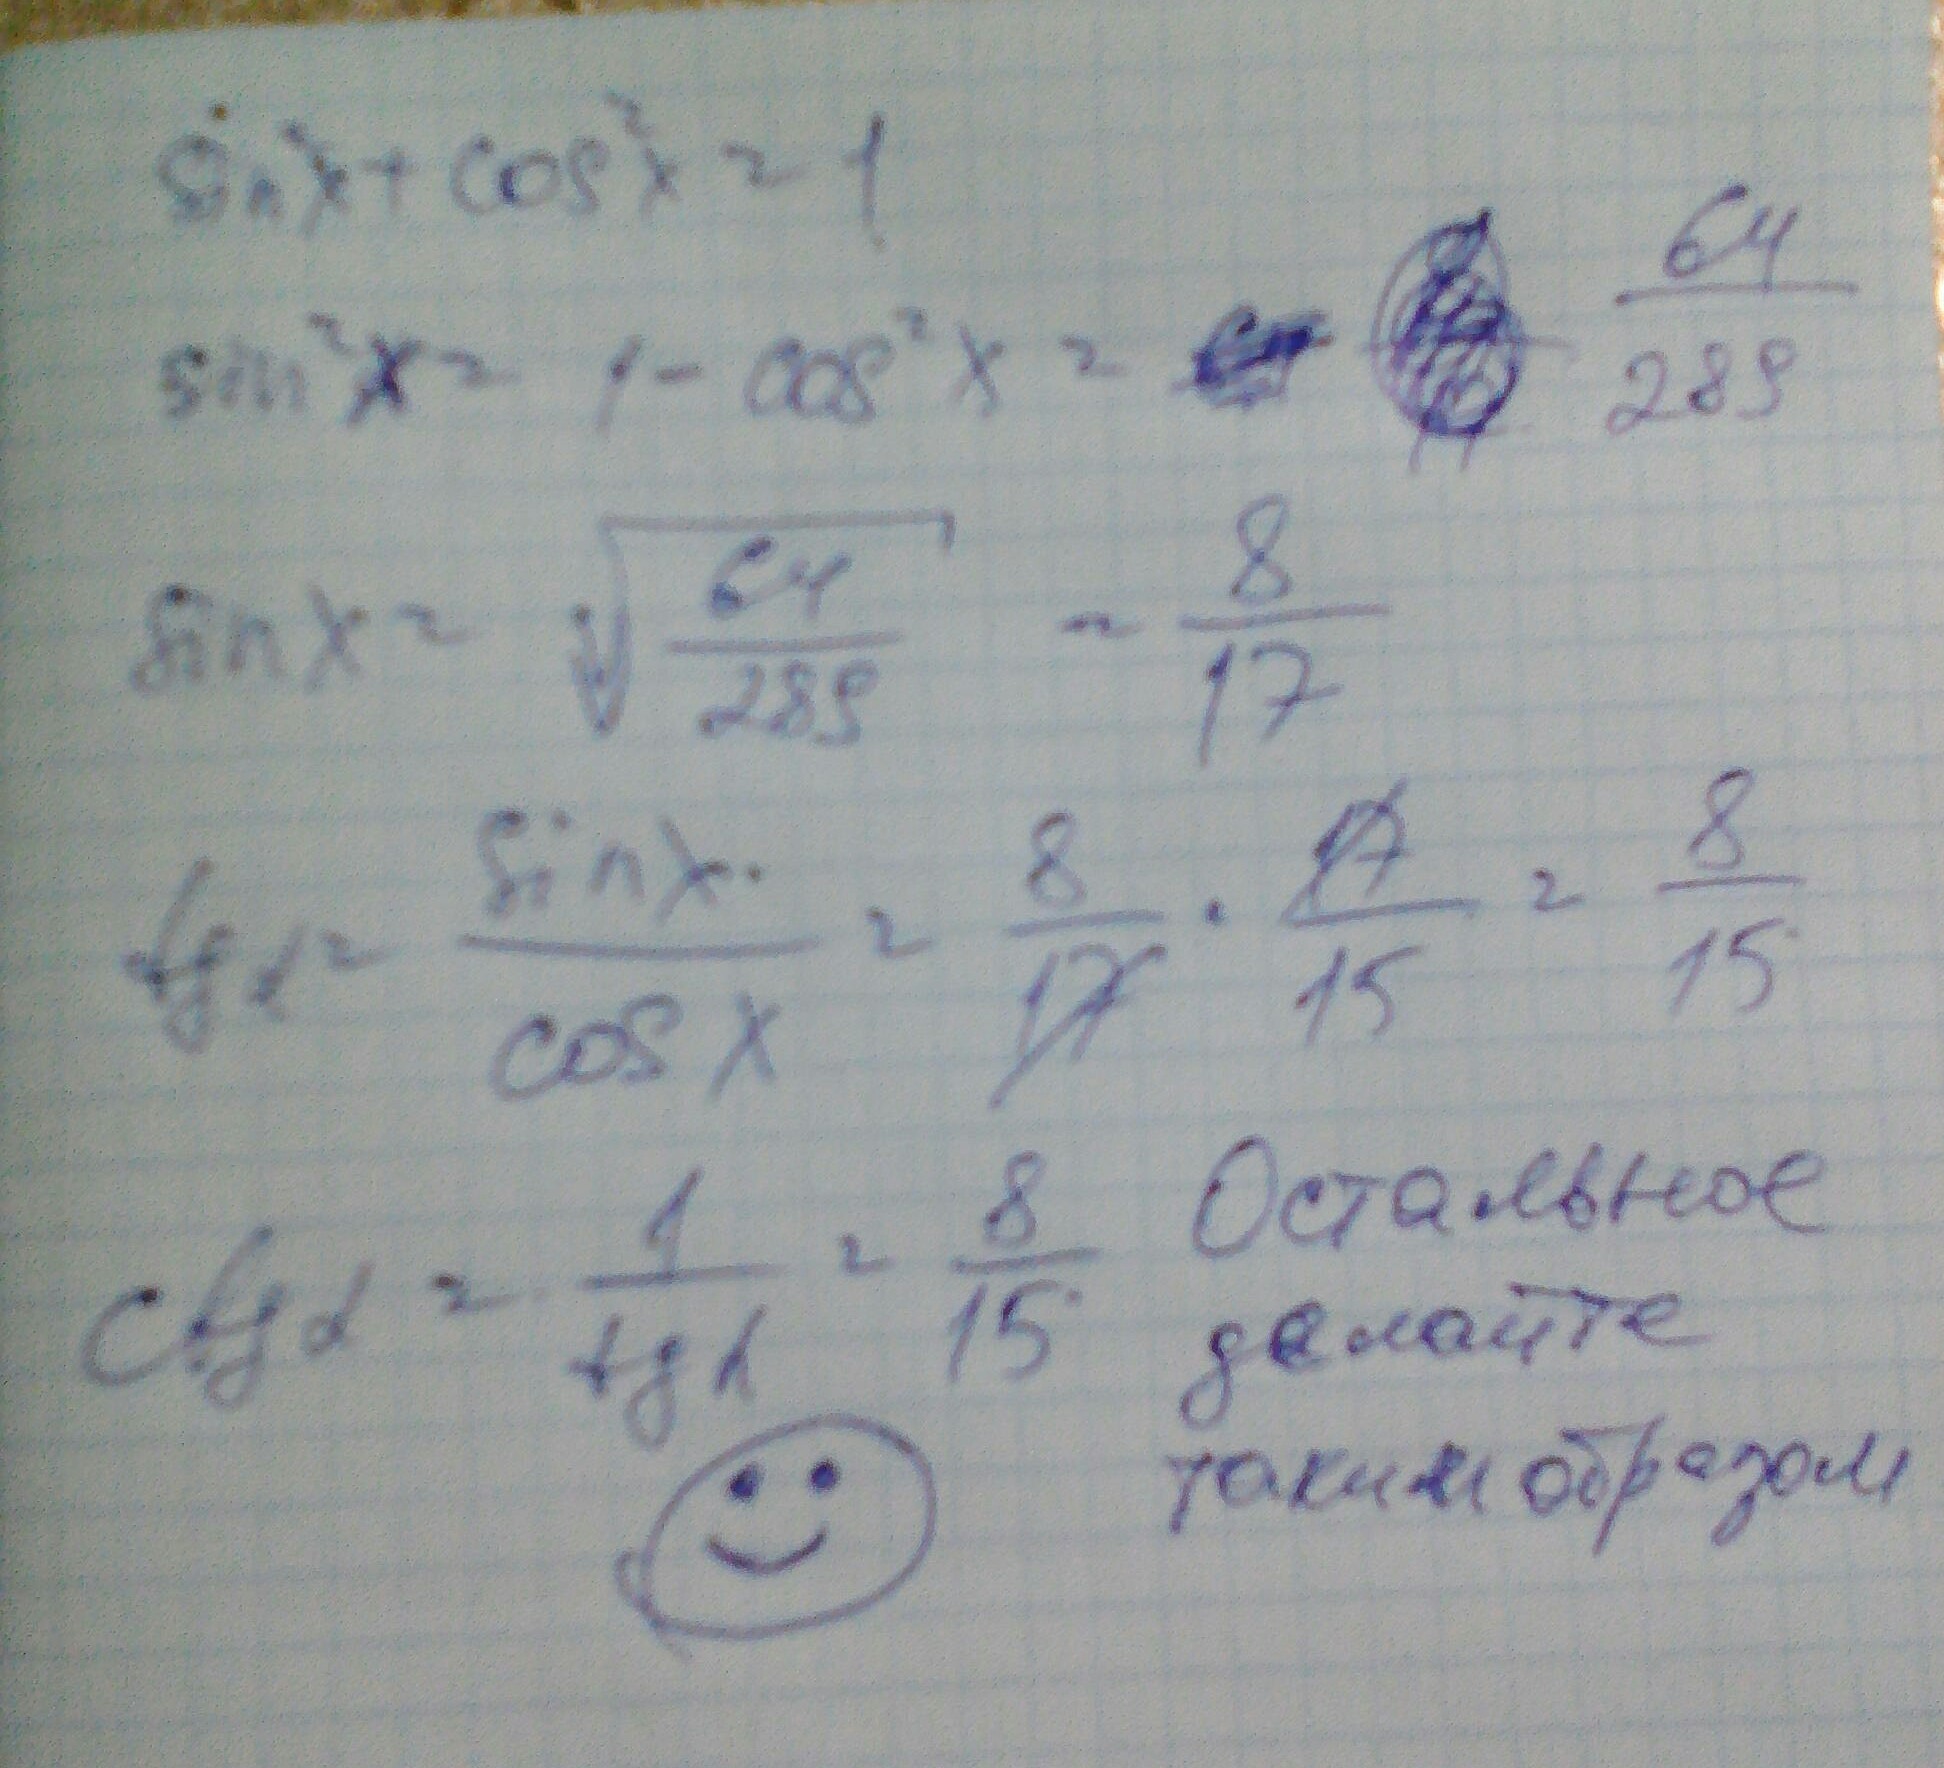 sin²x + cos²x = 1
sin²x = 1 - cos²x = 64/289
sin x = √(64/289) = 8/17
tg α = sin x / cos x = 8/17 · 17/15 = 8/15
ctg α = 1/tg α = 8/15 Остальное
делайте
таким образом